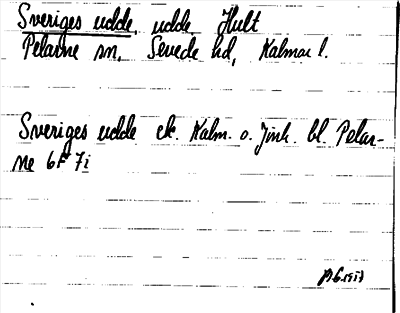 Sveriges udde, udde Hult
Pelarne sn, Sevede hd, Kalmar l.
Sveriges udde ek. Kalm. o. Jönk. bl. Pelar-
ne 6F 7i